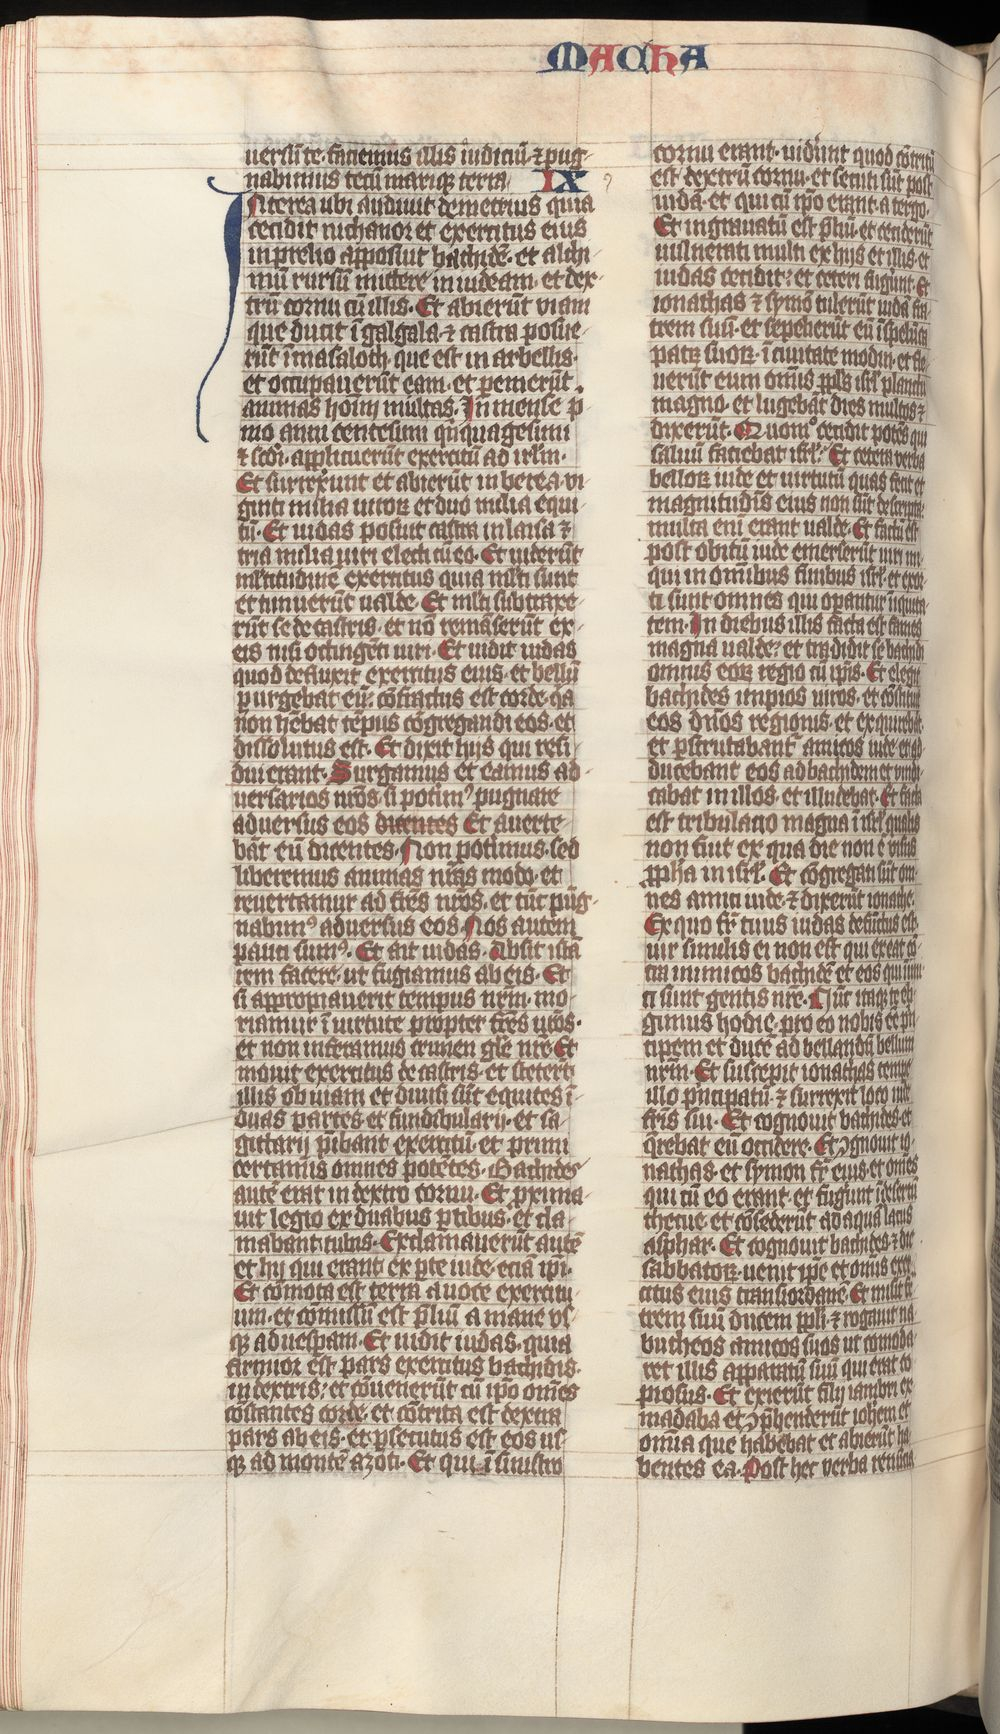 MACHA
uersū te. faciemus illis iudiciū. ⁊ pug-
nabimus tecū mariq; terra. IX
Interea ubi audiuit demetrius quia
cecidit nichanor et exercitus eius
in prelio apposuit bachidē. et alchi-
mū rursū mittere in iudeam. et dex-
trū cornu cū illis. Et abierūt viam
que ducit ī galgala. ⁊ castra posue-
rūt ī masaloth. que est in arbellis.
et occupauerūt eam. et pemerūt
animas hoīm multas. In mense p̄-
mo anni centesimi qnquagesimi
⁊ scdi. applicuerūt exercitū ad irlm.
Et surrexunt et abierūt in berea. vi-
ginti milia uiroꝝ et duo milia equi-
tū. Et iudas posuit castra in laisa ⁊
tria milia uiri electi cū eo. Et uiderūt
mltitudinē exercitus quia mlti sunt
et timuerūt ualde. Et mlti subtraxe-
rūt se de castris. et nō remāserūt ex
eis nisi octingēti uiri. Et uidit iudas
quod defluxit exercitus eius. et bellū
purgebat eū. cōfractus est corde. qa
non hēbat tēpus cōgregandi eos. et
dissolutus est. Et dixit hijs qui resi-
dui erant. Surgamus et eamus ad-
uersarios nrōs. si potim⁹ pugnare
aduersus eos dicentes Et auerte-
bāt eū dicentes. Non potimus. sed
liberemus animas nrās modo. et
reuertamur ad frēs nrōs. et tūc pūg-
nabim⁹ aduersus eos. Nos autem
pauci sum⁹. Et ait iudas. Absit istā
rem facere. ut fugiamus ab eis. Et
si appropiauerit tempus nrm. mo-
riamur ī uirtute propter frēs nrōs.
et non inferamus crimen gle nrē. Et
mouit exercitus de castris. et steterūt
illis obuiam et diuisi sūt equites ī
duas partes. et fundibularij. et sa-
gittarij pībant exercitū. et primi
certaminis omnes potētes. Bachides
autē erat in dextro cornu. Et pxima-
uit legio ex duabus ptibus. et cla-
mabant tubis. Exclamauerūt autē
et hij qui erant ex pte iude. etia ipi.
Et cōmota est terra a uoce exercitu-
um. et cōmissū est pliū a mane us-
q; ad uesperam. Et uidit iudas. quia
firmior est pars exercitus bachidis.
in dextris. et cōuenerūt cū ipo omēs
cōstantes corde. et cōtrita est dextra
pars ab eis. et psecutus est eos us-
q; ad montē azoti. Et qui ī sinistro
cornu erant. uidūnt quod cōtritū
est dextrū cornu. et secuti sūt post
iudā. et qui cū ipo erant. a tergo.
Et ingrauatū est pliū. et ceciderūt
uulnerati multi ex hijs et illis. et
iudas cecidit. et ceteri fugūnt. Et
ionathas ⁊ symō tulerūt iudā fra-
trem suū. et sepelierūt eū ī spelūca
patꝝ suoꝝ. ī ciuitate modin. et fle-
uerūt eum omis ppls isrl planctu
magno. et lugebāt dies multos ⁊
dixerūt. Quom° cecidit potēs qui
saluū faciebat isrl. Et cetera verba
belloꝝ iude et uirtutū quas fecit et
magnitudīs eius non sūt descripta.
multa eni erant ualde. Et factū est
post obitū iude emerserūt uiri ini-
qui in omibus finibus isrl. et exor-
ti sunt omnes qui opantur iniquita-
tem. In diebus illis facta est fames
magna ualde. et tradidit se bachidi
omnis eoꝝ regio cū ipīs. Et elegit
bachides impios uiros. et cōstituit
eos dnōs regionis. et exquirebāt.
et pscrutabant amicos iude. et ad-
ducebant eos ad bachidem et uindi-
cabat in illos. et illudebat. Et facta
est tribulatio magna ī isrl qualis
non fuit ex qua die non ē visus
ppha in isrl. Et cōgregati sūt om-
nes amici iude. ⁊ dixerūt ionathe.
Ex quo fr tuus iudas defūctus est.
uir similis ei non est qui exeat cō-
tra inimicos bachidē et eos qui inimi-
ci sunt gentis nrē. Nūc itaq; te ele-
gimus hodie. pro eo nobis eē prin-
cipem et ducē ad bellandū bellum
nrm. Et suscepit ionathas tempe
illo pncipatū. ⁊ surrexit loco iude
fris sui. Et cognouit bachides. et
qrebat eū occidere. Et ꝯgnouit io-
nathas. et symon fr eius. et omēs
qui cū eo erant. et fugūnt ī desertū
thecue. et cōsederūt ad aquā lacus
asphar. Et cognouit bachides. ⁊ die
sabbatoꝝ. uenit ipe et omis exer-
citus eius transiordanē. Et misit fra-
trem suū ducem ppli. ⁊ rogauit na-
butheos amicos suos ut comoda-
ret illis apparatū suū qui erat co-
piosus. Et exierūt filij iambri ex
madaba et ꝯphenderūt iohem et
omia que habebat et abierūt ha-
bentes ea. Post hec verba renūcia-